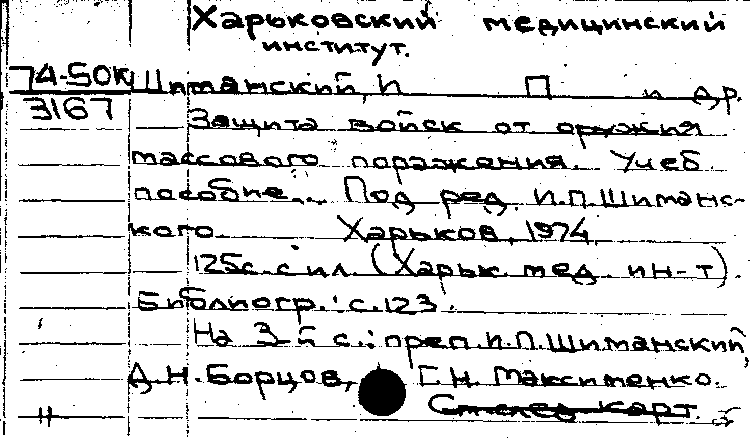 Харьковский медицинский
институт.
74-50К Шиманский, И П и др.
3167
Защита войск от оружия
массового поражения. Учеб.
пособие... Под ред. И.П.Шиманс-
кого Харьков, 1974.
125с. с ил. (Харьк. мед. ин-т).
Библиогр.: с.123.
На 3-й с.: преп. И.П.Шиманский,
Д.Н.Борцов, Г.Н. Максименко.
См след карт.